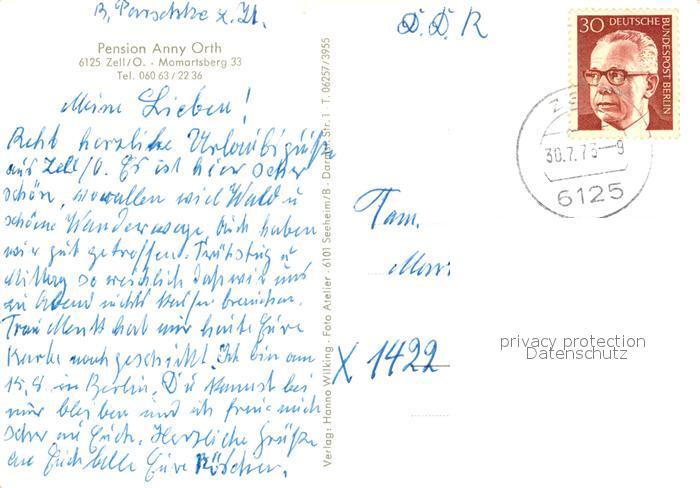 B. Parschke z. Zt.
Pension Anny Orth
6125 Zell/O. - Momartsberg 33
Tel. 060 63 / 22 36
Meine Lieben!
Recht herzliche Urlaubsgrüße
aus Zell/O. Es ist hier sehr
schön, vor allem viel Wald u
schöne Wanderwege. Auch haben
wir gut getroffen. Frühstück u
Mittag so reichlich daß wir uns
zu Abend nichts kaufen brauchen.
Frau hat mir heute Eure
Karte nachgeschickt. Ich bin am
15.8. in Berlin. Du kannst bei
mir bleiben und ich freue mich
sehr auf Euch. Herzliche Grüße
an Euch alle Eure
Verlag: Hanno Wilking - Foto Atelier - 6101 Seeheim/B - Darmst. Str. 1 T. 06257/3955
D.D.R
30 DEUTSCHE BUNDESPOST BERLIN
30.7.73-9
6125
Fam.
X 1422
privacy protection
Datenschutz